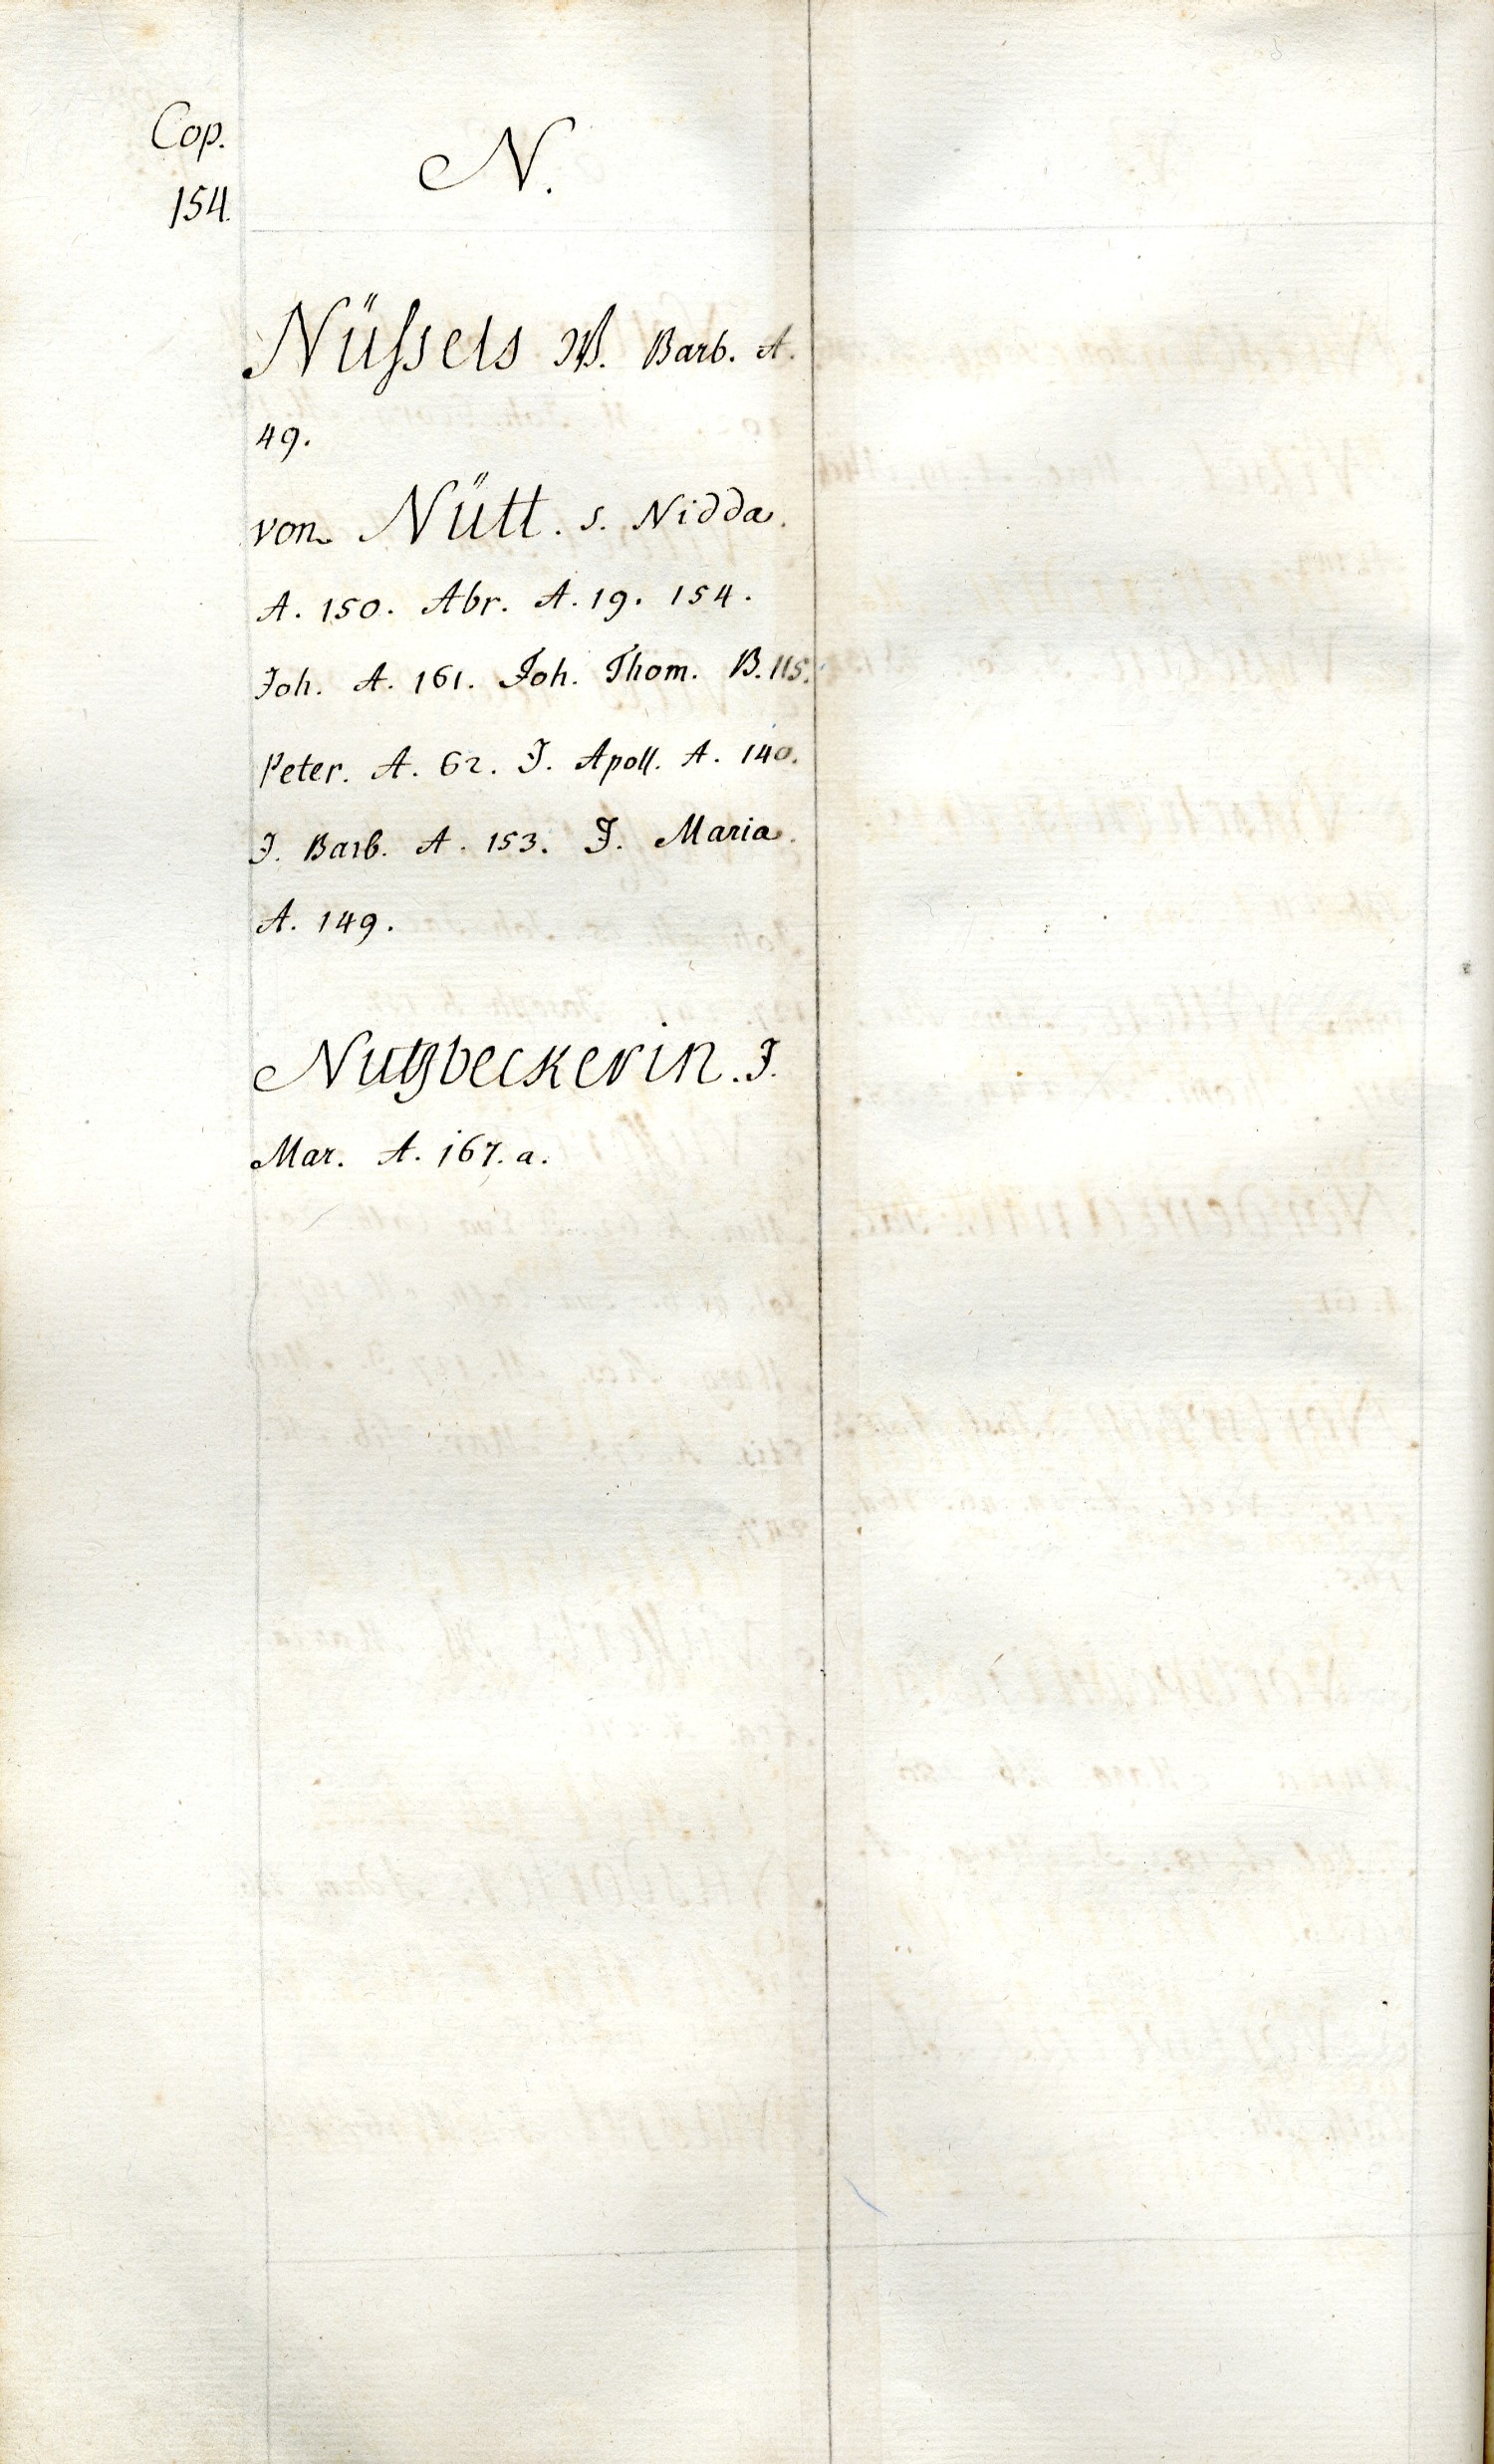 Cop.
154.
N.
Nüſsels W. Barb. A.
49.
von Nütt. s. Nidda.
A. 150. Abr. A. 19. 154.
Joh. A. 161. Joh. Thom. B. 115.
Peter. A. 62. J. Apoll. A. 140.
J. Barb. A. 153. J. Maria.
A. 149.
Nutzbeckerin. J.
Mar. A. 167. a.